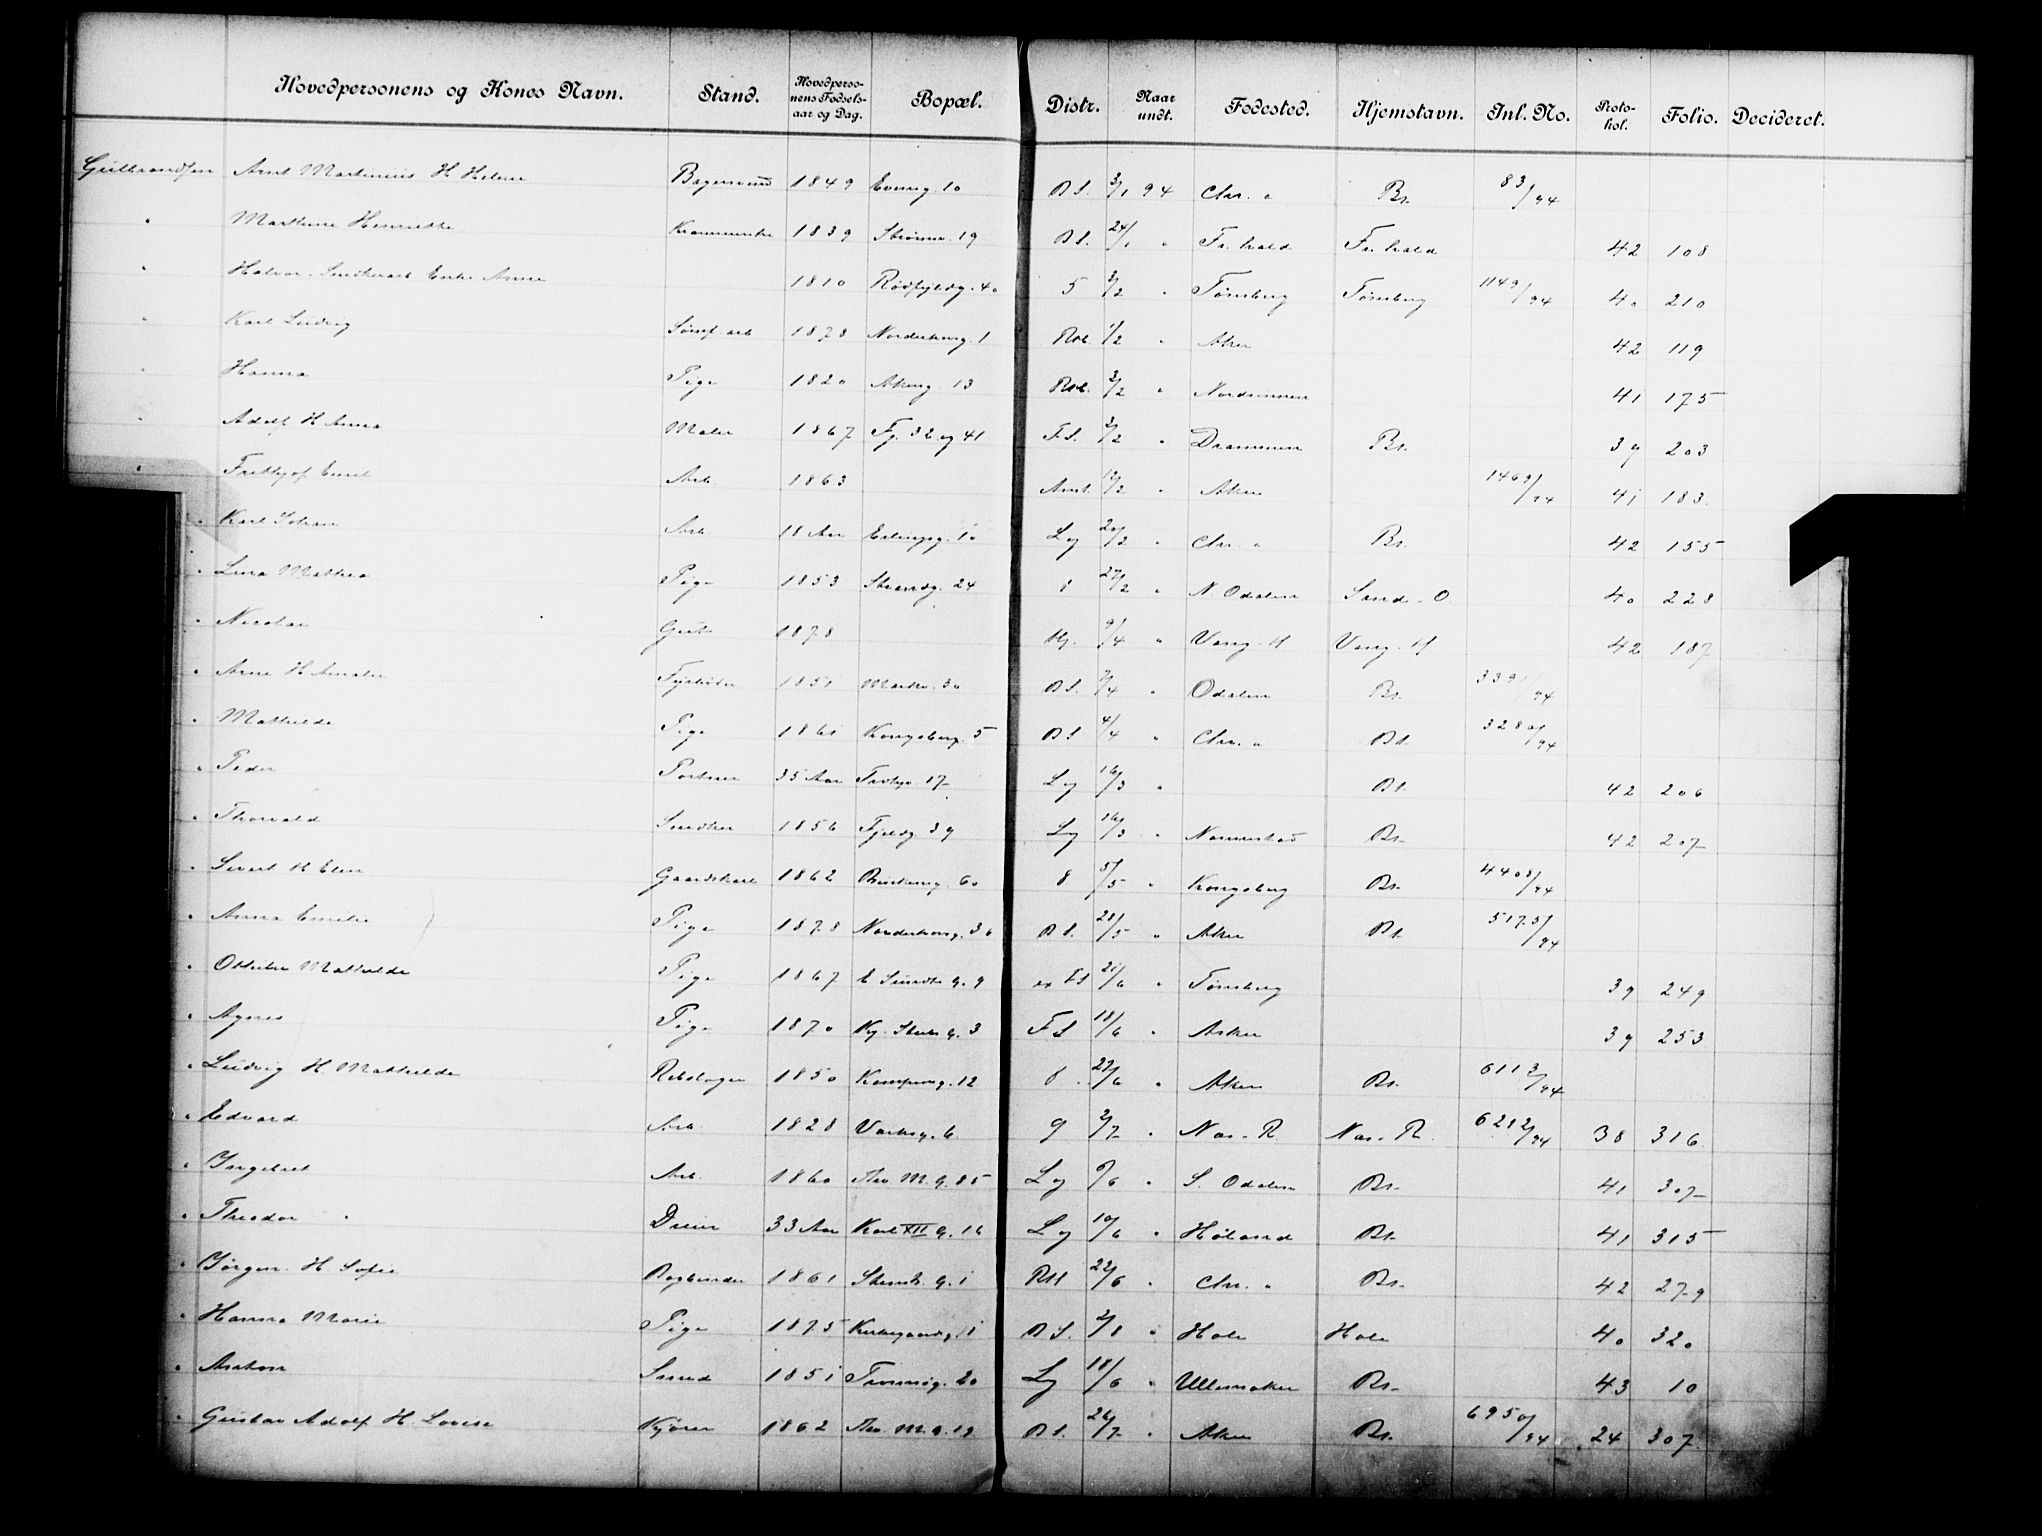 Hovedpersonens og Kones Navn. Stand. Hovedpersonens Fødselsaar og Dag. Bopæl. Distr. Naar undt. Fødested. Hjemstavn. Inl. No. Protokol. Folio. Decideret.
Gulbrandsen Arnt Martinius H. Helene Bagersvend 1849 Eveng. 10 B S. 94 Chr. " Bs. 83/94
" Marthine Henriette 1839 Strømsv. 19 B S. 24/1 " Fr.hald Fr.hald 42 108
" Halvor Snedkerarb. Enke Anne 1810 Rødfyldg. 40 5 3/2 " Tønsberg Tønsberg 1149/94 40 210
" Karl Ludvig 1878 Norderhovg. 1 Rod. 1/2 " Aker 42 119
" Hanna Pige 1820 Akersg. 13 Rod. 3/2 " Nordsinnen 41 175
" Adolf H. Anna Maler 1867 Fg. 36 og 41 F S. 3/2 " Drammen Bs. 39 203
" Frithjof Emil Arb. 1863 Amt. 12/2 " Aker 1469/94 41 183.
" Karl Johan Arb. 18 Aar Erlingsg. 10 Lg 20/2 " Chr. " Bs. 42 155
" Lina Mathea Pige 1853 Strandg. 24 1 27/2 " N. Odalen Sand - O. 40 228
" Nicolai Gut 1878 9/4 " Vang - H Vang - H 42 187
" Arne H. Amalie Fyrbøter 1851 Markv. 30 B S. 3/4 " Odalen Bs. 3391/94
" Mathilde Pige 1861 Kongsberg. 5 B S 4/4 " Chr. " Bs. 3280/94
" Peder Portner 35 Aar 17 Lg 16/3 " Bs. 42 206
" Thorvald Snedker 1856 Fjeldg. 39 Lg 16/3 " Nannestad Bs. 42 207
" Sivert H. Elen Gaardskarl 1862 60 8 5/5 " Kongsberg Bs. 4408/94
" Anna Emilie Pige 1878 Norderhovg. 36 B S. 28/5 " Aker Bs. 5175/94
" Ottilie Mathilde Pige 1867 E Sundts g. 9 ex FS 21/6 " Tønsberg 39 249
" Agnes Pige 1870 3 F S 18/6 " Asker 39 253
" Ludvig H. Mathilde Rebslager 1850 Kampeng. 12 8. 27/6 " Aker Bs. 6113/94
" Edvard Arb. 1828 6. 9 2/7 " Næs - R. Næs - R. 6212/94 38 316
" Ingebret Arb. 1860 Thv. M. g. 85 Lg 9/6 " S. Odalen Bs. 41 307
" Theodor Dreier 33 Aar Karl XII g. 16 Lg 10/6 " Høland Bs. 41 315
" Jørgen H. Sofie Bogbinder 1861 Stenb. g. 1 RH 22/6 " Chr. " Bs. 42 279
" Hanna Marie Pige 1875 Kirkegaardg. 11 B S. 2/8 " Hole Hole 40 320
" Anton Smed 1851 Tromsøg. 20 Lg 18/6 " Ullensaker Bs. 43 10
" Gustav Adolf H. Lovise Kjører 1862 Thv. M. g. 19 B S. 26/7 " Aker Bs. 6950/94 24 307